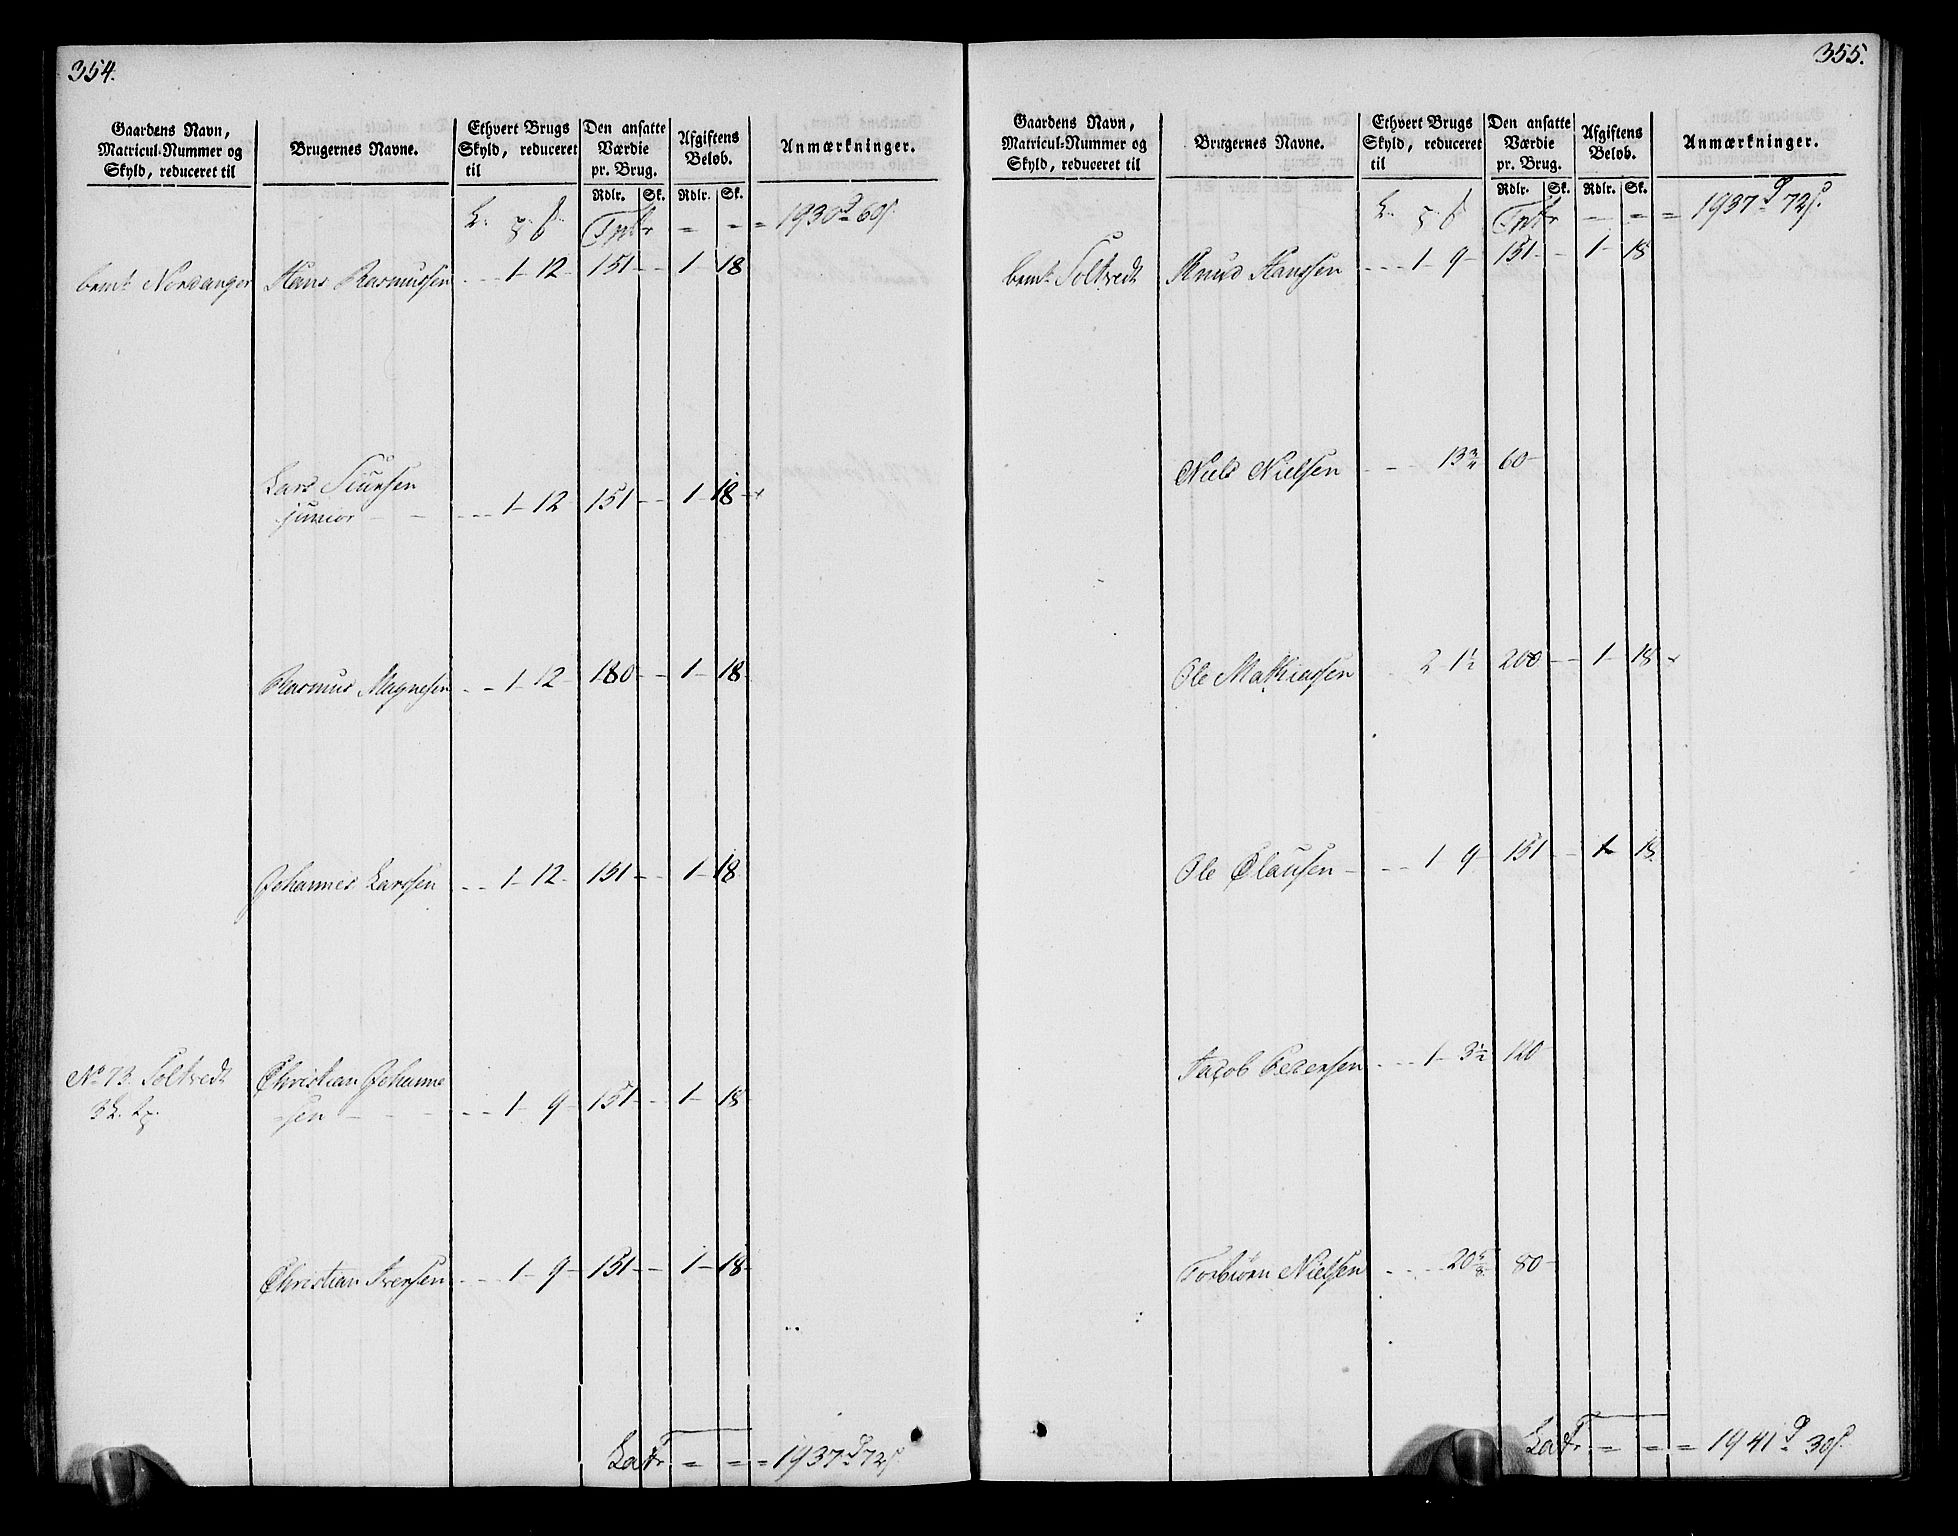 354.
Gaardens Navn, Matricul-Nummer og Skyld, reduceret til
Brugernes Navne.
Ethvert Brugs Skyld, reduceret til
Den ansatte Værdie pr. Brug.
Afgiftens Beløb.
Anmærkninger.
Rdlr. Sk. Rdlr. Sk.
Tptr = = = 1930 60
bemt Nordanger Hans Rasmussen --- 1 - 12 - 151 - - 1 - 18
Lars Siursen
junior - - --- 1 - 12 151 - - 1 - 18 -
Rasmus Magnesen - - 1 - 12 - 180 - - 1 - 18 -
Johannes Larssen - - 1 - 12 - 151 - - 1 - 18
No 73. Soltvedt Christian Johanne
sen - - --- 1 - 9 - 151 - - 1 - 18 -
Christian Iversen - - - 1 - 9 - 151 - - 1 - 18 -
Latr = = = 1937 72
355.
Gaardens Navn, Matricul-Nummer og Skyld, reduceret til
Brugernes Navne.
Ethvert Brugs Skyld, reduceret til
Den ansatte Værdie pr. Brug.
Afgiftens Beløb.
Anmærkninger.
Rdlr. Sk. Rdlr. Sk.
Tptr = = = 1937 72
bemt Soltvedt Knud Hanssen --- 1 - 9 - 151 - - 1 - 18
Niels Nielsen - - 13 3/4 60 -
Ole Mathiassen - 2 1 1/2 200 - - 1 - 18
Ole Olausen - - - - 1 9 151 - - 1 - 18
Jacob Pedersen - - - 1 - 3 1/2 120 -
Torbiørn Nielsen - - - - 20 5/8 80 -
Latr = = = 1941 30